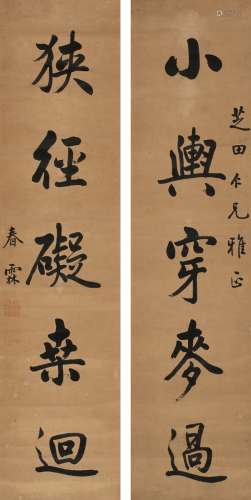 芝田仁兄雅正
小輿穿麥過
狹徑礙桑迴
春霖